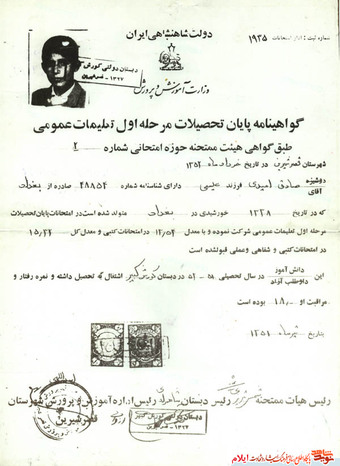 دولت شاهنشاهی ایران
شماره ثبت دفتر امتحانات ۱۹۳۵
دبستان دولتی کورش
وزارت آموزش و پرورش
گواهینامه پایان تحصیلات مرحله اول تعلیمات عمومی
طبق گواهی هیئت ممتحنه حوزه امتحانی شماره ۲
شهرستان قصرشیرین در تاریخ خرداد ماه
دوشیزه
آقای صادق امیدی فرزند عیسی دارای شناسنامه شماره ۲۸۸۵۴ صادره از بغداد
که در تاریخ ۱۳۳۸ خورشیدی در بغداد متولد شده است در امتحانات پایان تحصیلات
مرحله اول تعلیمات عمومی شرکت نموده و با معدل ۱۲/۵۴ در امتحانات کتبی و معدل کل ۱۵/۲۲
در امتحانات کتبی و شفاهی و عملی قبول شده است
این دانش آموز
داوطلب آزاد در سال تحصیلی در دبستان کورش کبیر اشتغال به تحصیل داشته و نمره رفتار و
مراقبت او ۱۸ بوده است
بتاریخ تیر ماه ۱۳۵۱
رئیس هیأت ممتحنه رئیس دبستان رئیس اداره آموزش و پرورش شهرستان
قصرشیرین
ایلام